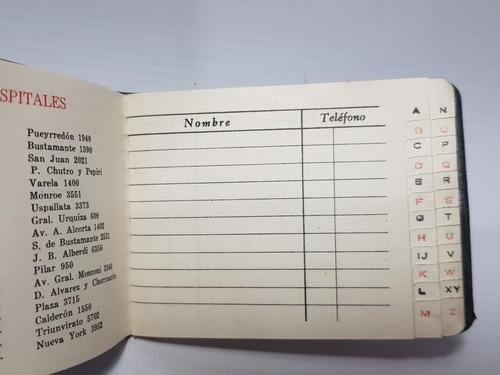 SPITALES
Pueyrredón 1940
Bustamante 1390
San Juan 2021
P. Chutro y Pepirí
Varela 1400
Monroe 3551
Uspallata 3373
Gral. Urquiza 609
Av. A. Alcorta 1402
S. de Bustamante 2531
J. B. Alberdi 6350
Pilar 950
Av. Gral. Mosconi 3346
D. Alvarez y Chorroarín
Plaza 3715
Calderón 1550
Triunvirato 5702
Nueva York 3952
Nombre Teléfono
A N
B O
C P
D Q
E R
F S
G T
H U
IJ V
K W
L XY
M Z